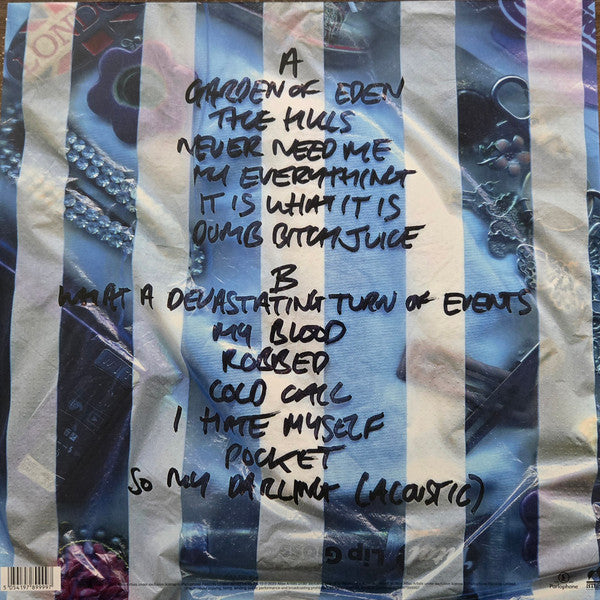 COND
A
GARDEN OF EDEN
THE HILLS
NEVER NEED ME
MY EVERYTHING
IT IS WHAT IT IS
DUMB BITCH JUICE
B
WHAT A DEVASTATING TURN OF EVENTS
MY BLOOD
ROBBED
COLD CALL
I HATE MYSELF
POCKET
SO MY DARLING (ACOUSTIC)
Lip Gloss
5 054197 899997
Parlophone